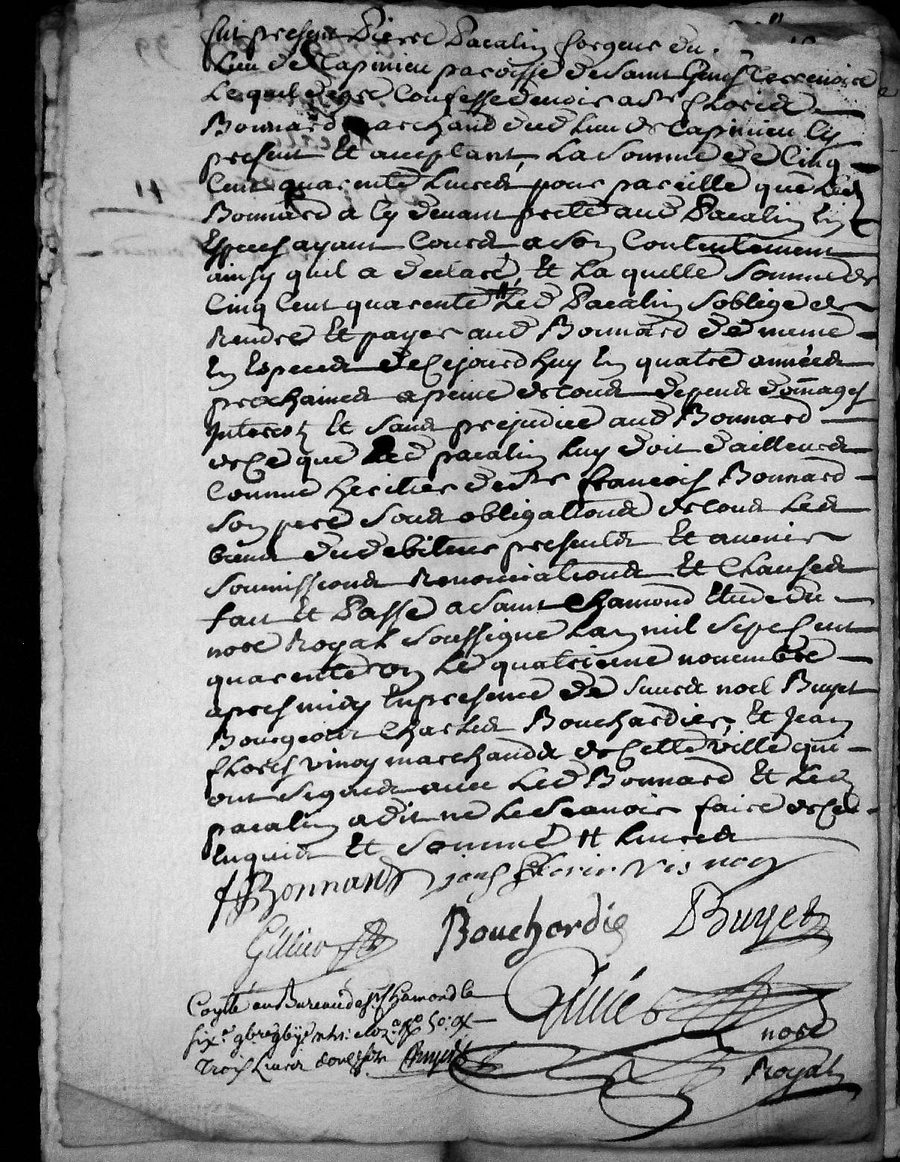 fut present Pierre Pacalin forgeur du
Lieu de Lapinieu paroisse de Saint Genis Terrenoire
Lequel de gre Confesse devoir a Sr Floris
Bonnard Marchand dud Lieu de Lapinieu Cy
present Et acceptant La Somme de Cinq
Cent quarente Livres pour pareille que Led
Bonnard a Cy devant preté aud Pacalin En
Especes ayant Cours a son Contentement
ainsy quil a declaré, Et La quelle Somme de
Cinq Cent quarente tt Led Pacalin soblige de
Rendre Et payer aud Bonnard de meme
En Especes de Cejourdhuy En quatre années
prochaines a peine de tous depens domages
Interets Et sans prejudice aud Bonnard
de Ce que Led pacalin Luy doit dailleurs
Comme heritier de Sr françois Bonnard
Son pere Sous obligations de tous Les
biens dud debiteur presents Et avenir
Soumissions Renonciations Et Clauses
fait Et Passé a Saint Chamond Etude du
nore Royal Soussigné Lan mil Sept Cent
quarente Le quatrieme novembre
apres midy En presence de Sieurs noel Buyet
Bourgeois Charles Bouchardier, Et Jean
floris vinoy marchands de Cette ville qui
ont Signé avec Led Bonnard Et Led
pacalin a dit ne Le Scavoir faire de Ce
Enquis Et Sommé tt Livres
f Bonnard jean Floris Vinoy
Bouchardie Buyet
Contlé au Bureau de St Chamond le
six.e 9bre
Trois Livres douze s Buyet
nore
Royal